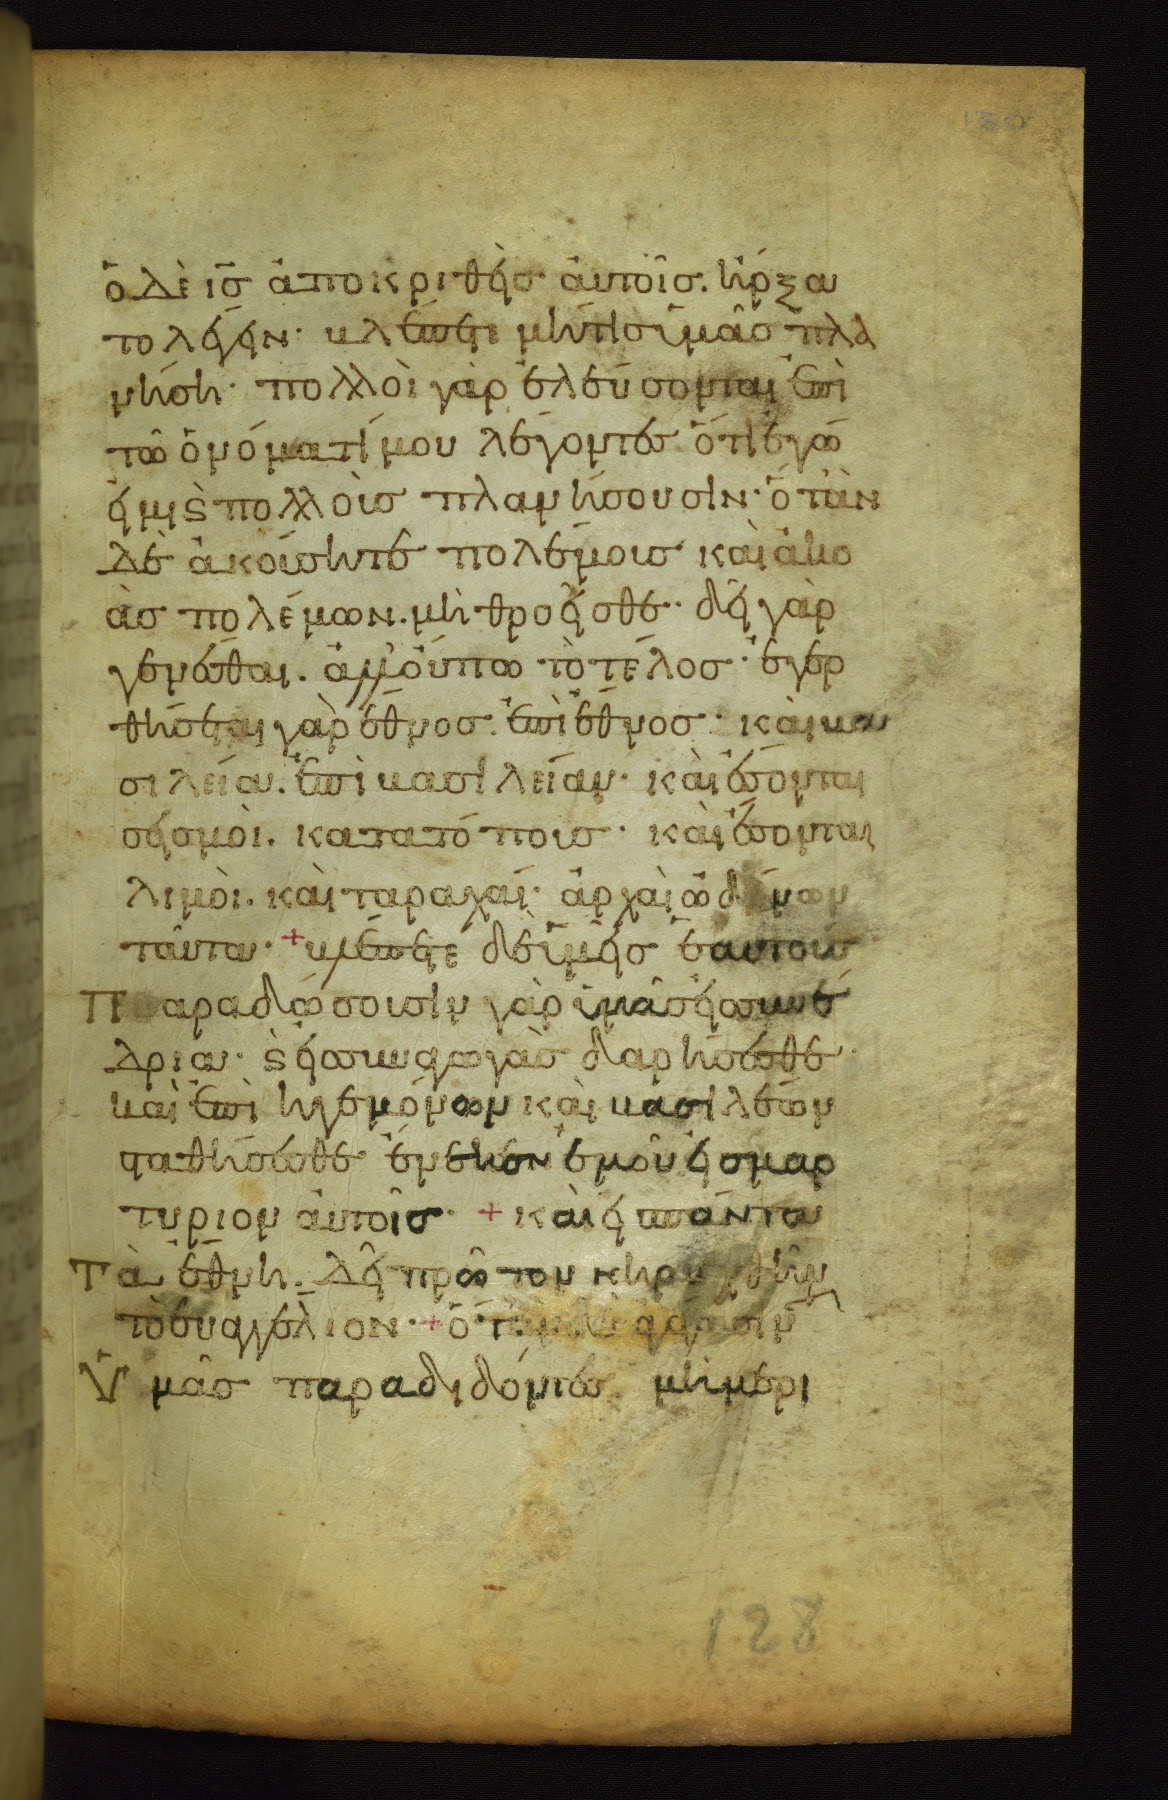 ὁ δὲ ισ ἀποκριθεὶς αὐτοῖς. ἤρξα
το λέγειν· βλέπετε μήτισ ὑμᾶσ πλα
νήση· πολλοὶ γὰρ ἐλεύσονται ἐπὶ
τῶ ὀνόματί μου λέγοντες ὅτι ἐγώ
εἰμι ϗ πολλοὺσ πλανήσουσιν· ὅταν
δὲ ἀκούσητε πολέμουσ καὶ ἀκο
ὰσ πολέμων. μὴ θροεῖσθε· δεῖ γὰρ
γενέσθαι. ἀλλ' οὔπω τὸ τέλοσ· ἐγερ
θήσεται γὰρ ἔθνοσ ἐπὶ ἔθνοσ· καὶ βα
σιλεία. ἐπὶ βασιλείαν· καὶ ἔσονται
σεισμοὶ. κατα τόπουσ· καὶ ἔσονται
λιμοὶ. καὶ ταραχαί· ἀρχαὶ ὠδίνων
ταῦτα· + βλέπετε δὲ ὑμεῖσ ἑαυτούσ
Παραδώσουσιν γὰρ ὑμᾶσ εἰσ συνέ
δρια· ϗ εἰσ συναγωγὰσ δαρήσεσθε·
καὶ ἐπὶ ἡγεμόνων καὶ βασιλέων
σταθήσεσθε ἕνεκεν ἐμοῦ εἰσ μαρ
τυριον αὐτοῖσ· + καὶ εἰσ πάντα
Τὰ ἔθνη. δεῖ πρῶτον κηρυχθῆν
τὸ εὐαγγέλιον· + ὅταν
Ὑμᾶσ παραδιδόντεσ μὴ μερι
128